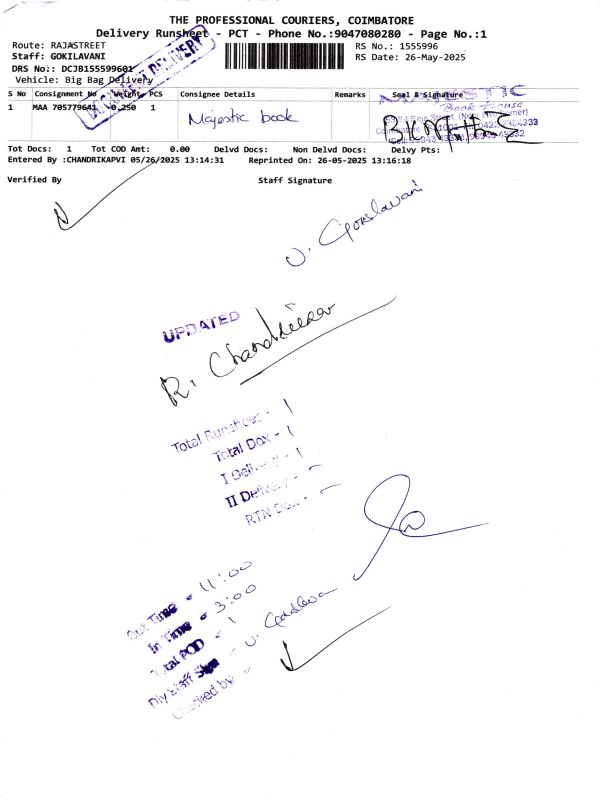 THE PROFESSIONAL COURIERS, COIMBATORE
Delivery Runsheet - PCT - Phone No.:9047080280 - Page No.:1
Route: RAJASTREET
Staff: GOKILAVANI
DRS No:: DCJB155599601
Vehicle: Big Bag Delivery
RS No.: 1555996
RS Date: 26-May-2025
DOCUMENT DELIVERY
S No Consignment No Weight PCS Consignee Details Remarks Seal & Signature
1 MAA 705779641 0.250 1 Majestic book
MAJESTIC
Book House
Tot Docs: 1 Tot COD Amt: 0.00 Delvd Docs: Non Delvd Docs: Delvy Pts:
Entered By :CHANDRIKAPVI 05/26/2025 13:14:31 Reprinted On: 26-05-2025 13:16:18
Verified By Staff Signature
U. Gokilavani
UPDATED
R. Chandrikaa
Total Runsheet - 1
Total Dox - 1
I Delivery - 1
II Delivery - -
RTN Dox - -
Out Time - 11:00
In Time - 3:00
Total POD - 1
Dly Staff Sign - U. Gokilavani
Checked by -